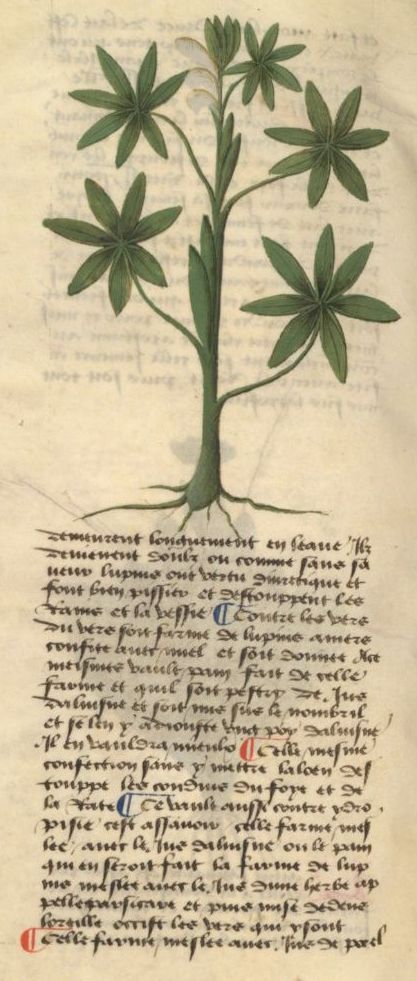 demeurent longuement en leaue . Ilz
deviennent doulz ou comme sans sa
ueur lupins ont vertu diuretique et
font bien pissier et destouppent les
Rains et la vessie ¶ Contre les vers
du vers soit farine de lupins amers
confite auec miel et soit donnee Ace
meismes vault pain fait de celle
farine et quil soit pestry de . Jus
daluisne et soit mis sus le nombril
et se len y adiouste vng poy daluisne
. Il en vauldra mieulx ¶ Celle mesme
confection sans y mettre laloen des
touppe les conduis du foye et de
la Rate ¶ Ce vault aussi contre ydro
pisie cest assauoir celle farine mes
lee auec le Jus daluisne ou le pain
qui en seroit fait la farine de lup
ins meslee auec le Jus dune herbe ap
pellee parsicare et puis mise dedens
loreille occist les vers qui y sont
¶ Celle farine meslee auec . Jus de porel